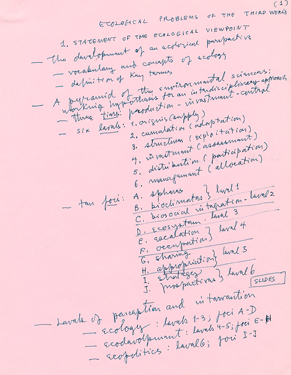 (1)
ECOLOGICAL PROBLEMS OF THE THIRD WORLD
1. STATEMENT OF THE ECOLOGICAL VIEWPOINT
— The development of an ecological perspective
— vocabulary and concepts of ecology
— definition of key terms
— A pyramid of the environmental sciences:
working hypothesis for an interdisciplinary approach
— three tiers: production - investment - control
— six levels: 1. origins (supply)
2. cumulation (adaptation)
3. structure (exploitation)
4. investment (assessment)
5. distribution (participation)
6. management (allocation)
— ten foci: A. spheres
B. bioclimates } level 1
C. biosocial integration - level 2
D. ecosystem - level 3
E. escalation } level 4
F. occupation
G. sharing } level 5
H. appropriation
I. strategy } level 6
J.
SLIDES
— Levels of perception and interaction
— ecology: levels 1-3; foci A-D
— ecodevelopment: levels 4-5; foci E-H
— ecopolitics: level 6; foci I-J